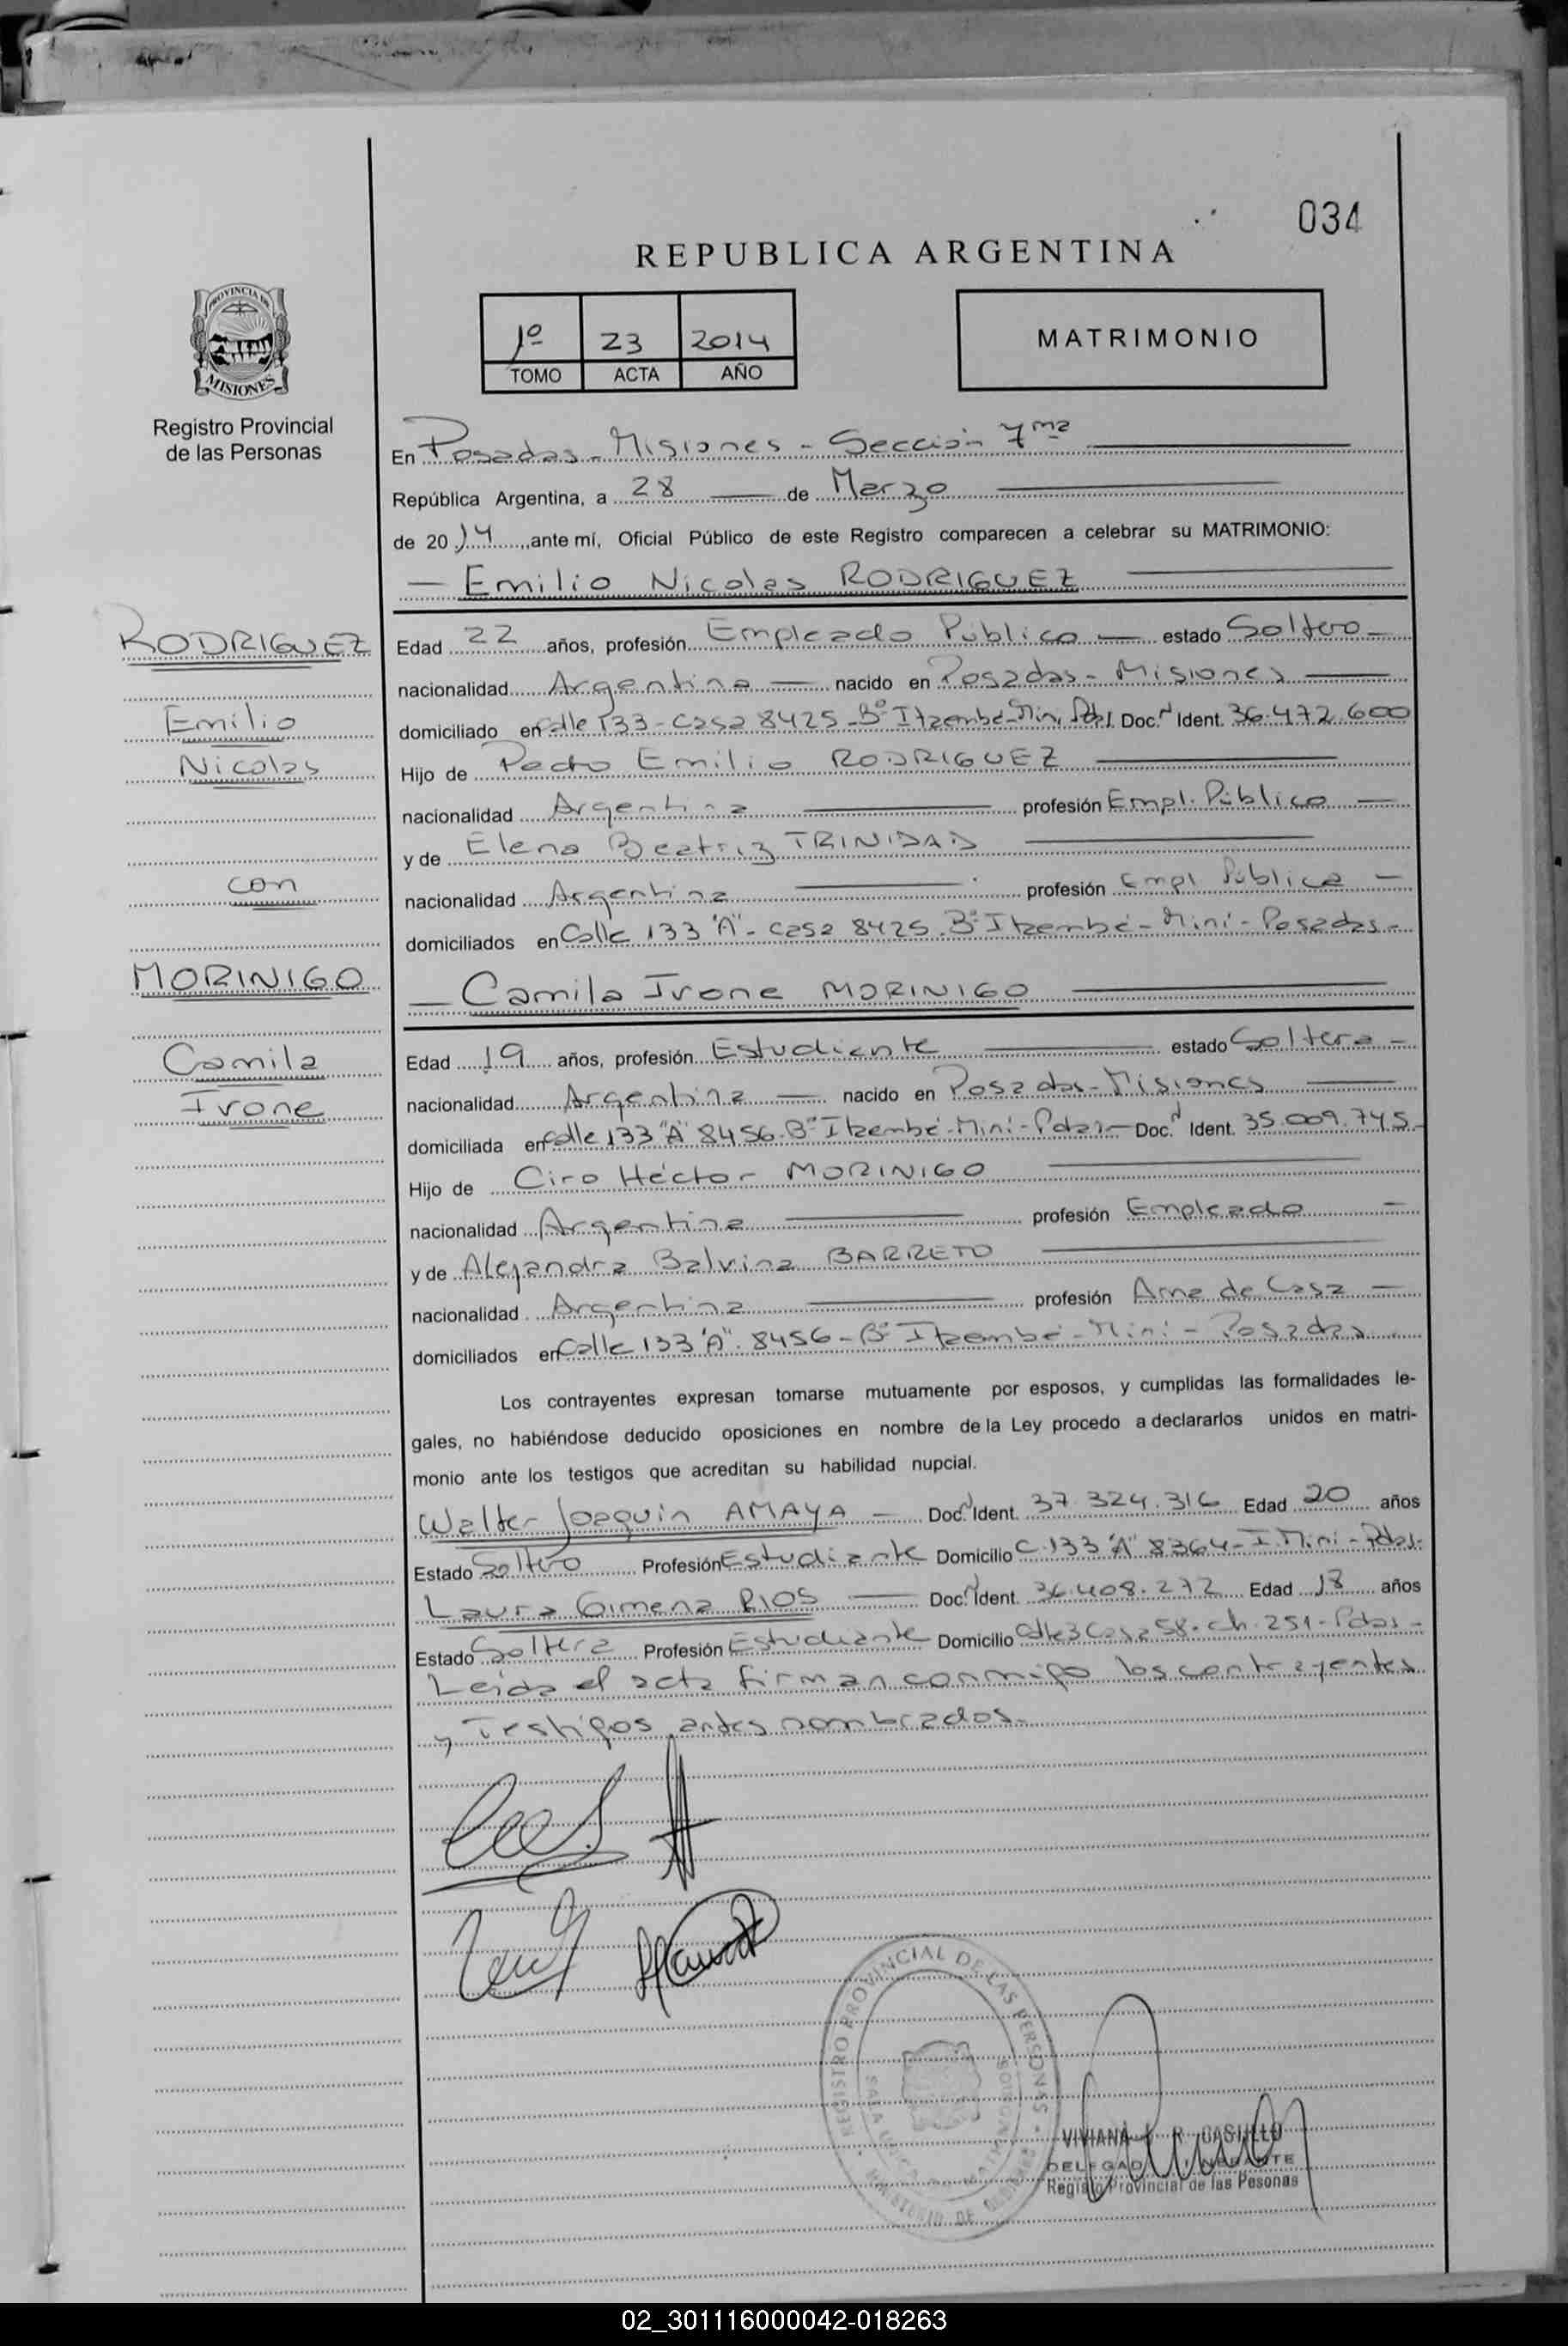 034
REPUBLICA ARGENTINA
PROVINCIA DE
MISIONES
Registro Provincial
de las Personas
1º 23 2014
TOMO ACTA AÑO
MATRIMONIO
En Posadas - Misiones - Sección 7ma
República Argentina, a 28 de Marzo
de 2014, ante mí, Oficial Público de este Registro comparecen a celebrar su MATRIMONIO:
Emilio Nicolas RODRIGUEZ
RODRIGUEZ
Emilio
Nicolas
con
MORINIGO
Camila
Ivone
Edad 22 años, profesión Empleado Público estado Soltero
nacionalidad Argentina nacido en Posadas - Misiones
domiciliado en Calle 133 - Casa 8425 - Bº Itaembé - Mini, Pdas. Doc. Ident. 36.472.600
Hijo de Pedro Emilio RODRIGUEZ
nacionalidad Argentina profesión Empl. Público
y de Elena Beatriz TRINIDAD
nacionalidad Argentina profesión Empl Pública
domiciliados en Calle 133 "A" - Casa 8425. Bº Itaembé - Mini - Posadas -
Camila Ivone MORINIGO
Edad 19 años, profesión Estudiante estado Soltera
nacionalidad Argentina nacido en Posadas - Misiones
domiciliada en Calle 133 "A" 8456. Bº Itaembé - Mini - Pdas. Doc. Ident. 35.009.745
Hijo de Ciro Héctor MORINIGO
nacionalidad Argentina profesión Empleado
y de Alejandra Balvina BARRETO
nacionalidad Argentina profesión Ama de Casa
domiciliados en Calle 133 "A". 8456 - Bº Itaembé - Mini - Posadas
Los contrayentes expresan tomarse mutuamente por esposos, y cumplidas las formalidades le-
gales, no habiéndose deducido oposiciones en nombre de la Ley procedo a declararlos unidos en matri-
monio ante los testigos que acreditan su habilidad nupcial.
Walter Joaquin AMAYA Doc. Ident. 37.324.316 Edad 20 años
Estado Soltero Profesión Estudiante Domicilio C. 133 "A" 8364 - I. Mini - Pdas.
Laura Gimena RIOS Doc. Ident. 36.408.272 Edad 18 años
Estado Soltera Profesión Estudiante Domicilio Calle 3 Casa 58. ch. 251 - Pdas -
Leída el acta firman conmigo los contrayentes
y Testigos antes nombrados.
REGISTRO PROVINCIAL DE LAS PERSONAS
MINISTERIO DE GOBIERNO
VIVIANA R. CASTILLO
Registro Provincial de las Pesonas
02_301116000042-018263